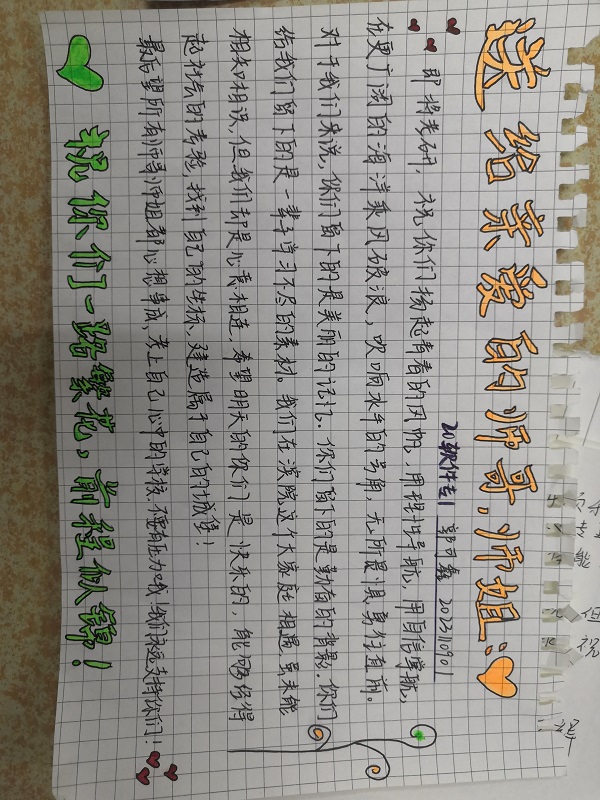 送给亲爱的师哥、师姐：
20软件专1 郭可鑫 202211090
即将考研，祝你们扬起青春的风帆，用理想导航，用自信掌舵，
在更广阔的海洋乘风破浪，吹响水手的号角，无所畏惧，勇往直前。
对于我们来说，你们留下的是美丽的记忆。你们留下的是勤奋的背影。你们
给我们留下的是一辈子学习不尽的素材。我们在滨院这个大家庭相遇虽未能
相知相识，但我们却是心意相连，希望明天的你们是快乐的，能够经得
起社会的考验，找到自己的坐标、建造属于自己的城堡！
最后望所有师哥师姐都心想事成，考上自己心中的学校，我们永远支持你们！
祝你们一路繁花，前程似锦！